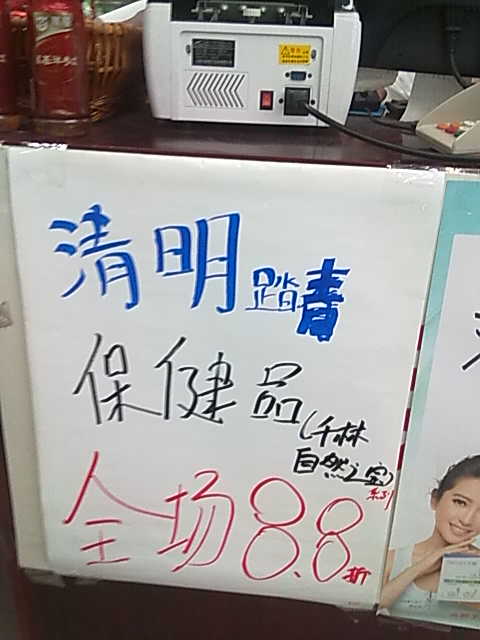 清明踏青
保健品
(千林
自然之宝)
系列
全场8.8折